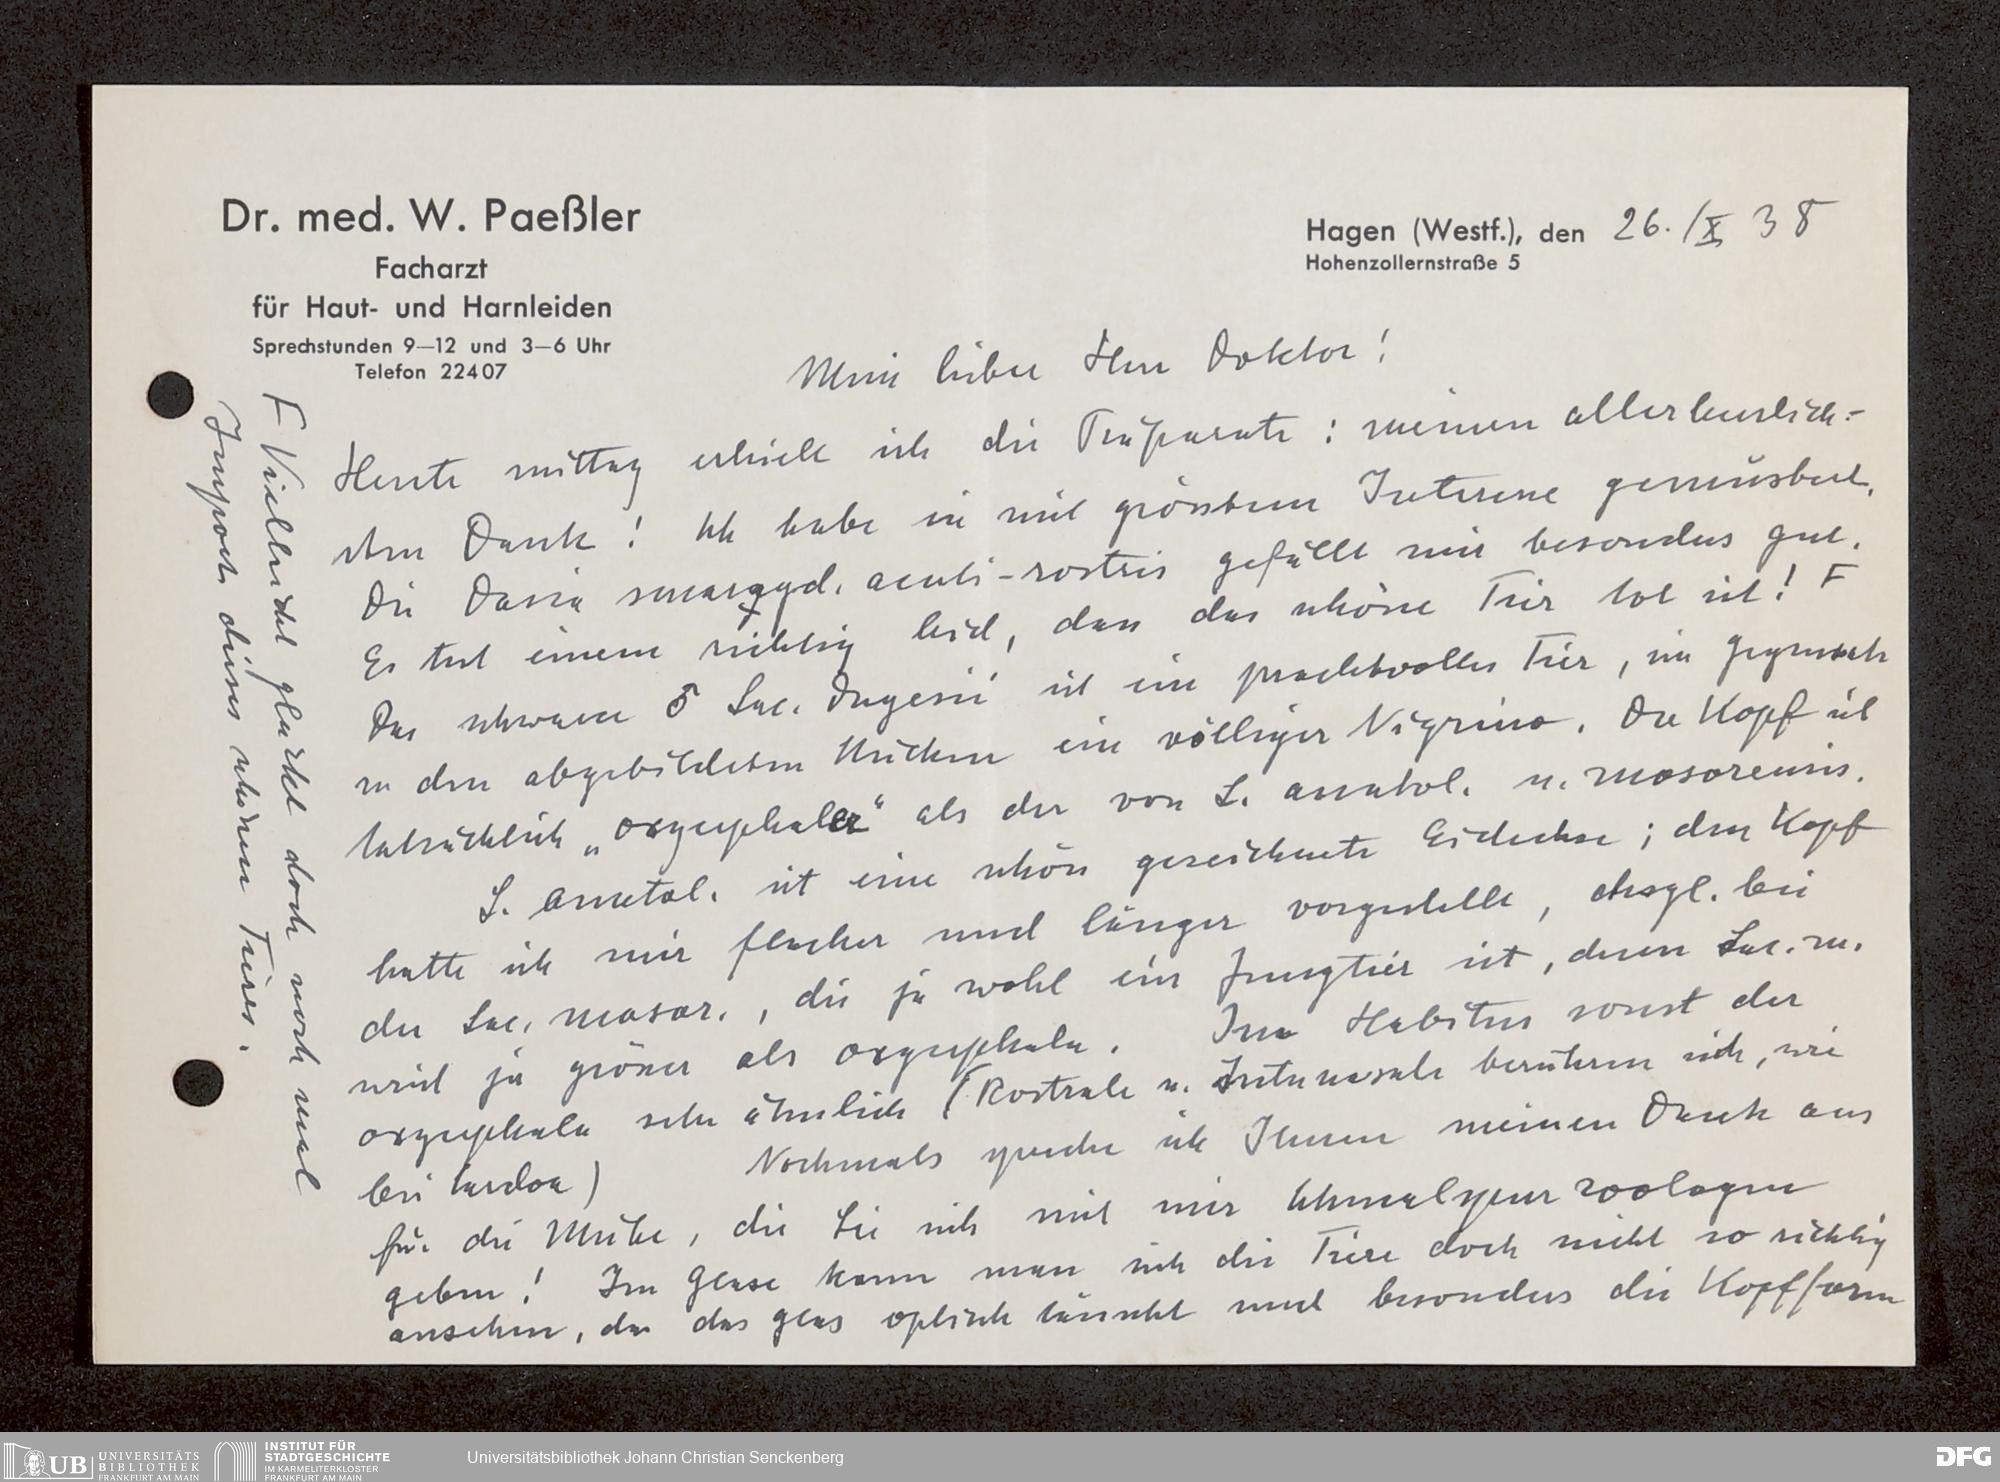 Dr. med. W. Paeßler
Facharzt
für Haut- und Harnleiden
Sprechstunden 9—12 und 3—6 Uhr
Telefon 22407
Hagen (Westf.), den 26./X 38
Hohenzollernstraße 5
Mein lieber Herr Doktor!
Heute mittag erhielt ich die Präparate: meinen allerherzlich-
sten Dank! Ich habe sie mit grösstem Interesse gemustert.
Die Dasia smaragd. acuti-rostris gefällt mir besonders gut.
Es tut einem richtig leid, dass das schöne Tier tot ist! F
Das schwarze ♂ Lac. Dugesii ist ein prachtvolles Tier, im Gegensatz
zu den abgebildeten Stücken ein völliger Nigrino. Der Kopf ist
tatsächlich „oxycephaler“ als der von L. anatol. u. mosorensis.
L. anatol. ist eine schön gezeichnete Eidechse; den Kopf
hatte ich mir flacher und länger vorgestellt, desgl. bei
der Lac. mosor., die ja wohl ein Jungtier ist, denn Lac. m.
wird ja grösser als oxycephala. Im Habitus sonst der
oxycephala sehr ähnlich (Rostrale u. Internasale berühren sich, wie
bei tardoa) Nochmals spreche ich Ihnen meinen Dank aus
für die Mühe, die Sie sich mit mir Schmalspurzoologen
geben! Im Glase kann man sich die Tiere doch nicht so richtig
ansehen, da das Glas optisch täuscht und besonders die Kopfform
F Vielleicht glückt doch noch mal
Import dieses schönen Tieres.
UB UNIVERSITÄTS
BIBLIOTHEK
FRANKFURT AM MAIN
INSTITUT FÜR
STADTGESCHICHTE
IM KARMELITERKLOSTER
FRANKFURT AM MAIN
Universitätsbibliothek Johann Christian Senckenberg
DFG